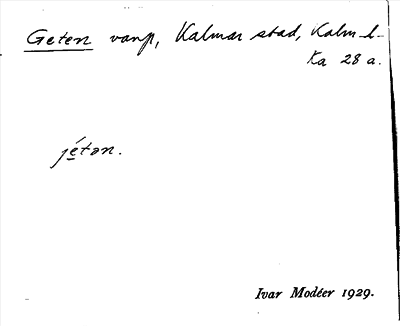 Geten vanp, Kalmar stad, Kalm. l.
Ka 28 a.
jéten.
Ivar Modéer 1929.